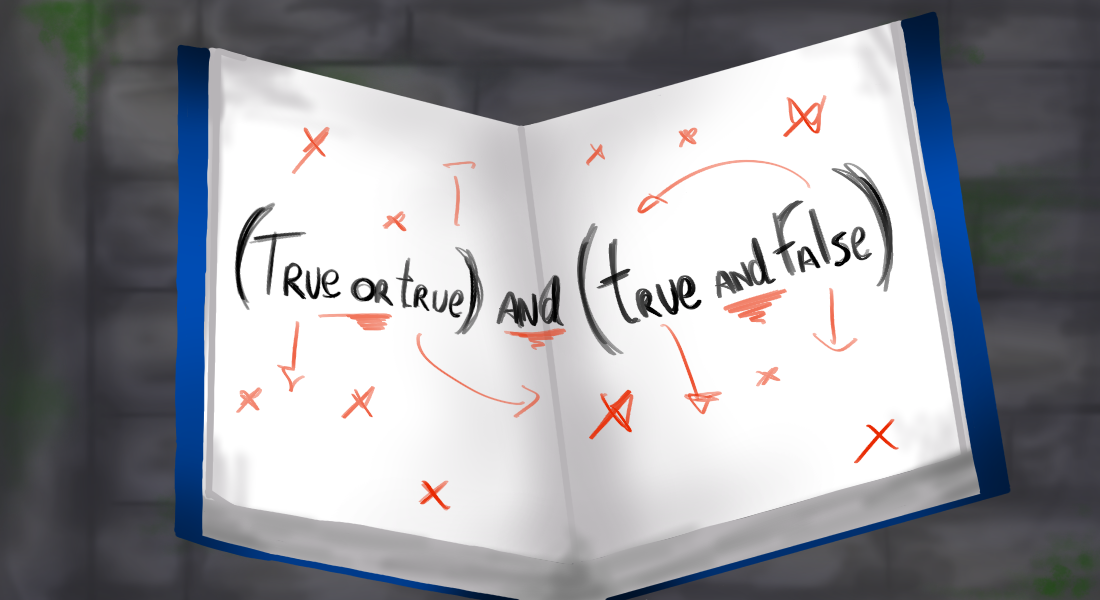 (True or true) and (true and False)